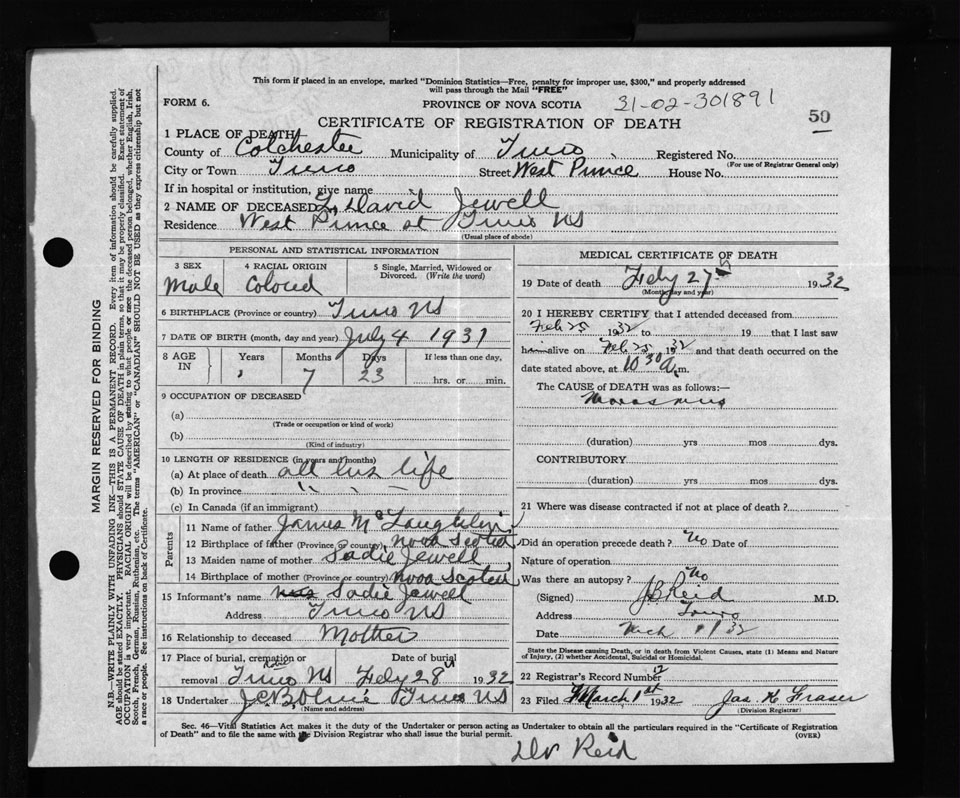 This form if placed in an envelope, marked "Dominion Statistics—Free, penalty for improper use, $300," and properly addressed
will pass through the Mail "FREE"
FORM 6. PROVINCE OF NOVA SCOTIA 31-02-301891
CERTIFICATE OF REGISTRATION OF DEATH 50
1 PLACE OF DEATH
County of Colchester Municipality of Truro Registered No.
(For use of Registrar General only)
City or Town Truro Street West Prince House No.
If in hospital or institution, give name
2 NAME OF DECEASED David Jewell
Residence West Prince st Truro NS
(Usual place of abode)
PERSONAL AND STATISTICAL INFORMATION
3 SEX 4 RACIAL ORIGIN 5 Single, Married, Widowed or
Divorced. (Write the word)
Male Colored
6 BIRTHPLACE (Province or country) Truro NS
7 DATE OF BIRTH (month, day and year) July 4 1931
8 AGE IN Years Months Days If less than one day,
7 23 hrs. or min.
9 OCCUPATION OF DECEASED
(a)
(Trade or occupation or kind of work)
(b)
(Kind of industry)
10 LENGTH OF RESIDENCE (in years and months)
(a) At place of death all his life
(b) In province " "
(c) In Canada (if an immigrant)
Parents
11 Name of father James McLaughlin
12 Birthplace of father (Province or country) Nova Scotia
13 Maiden name of mother Sadie Jewell
14 Birthplace of mother (Province or country) Nova Scotia
15 Informant's name Sadie Jewell
Address Truro NS
16 Relationship to deceased Mother
17 Place of burial, cremation or removal Truro NS Date of burial Feby 28 1932
18 Undertaker Truro NS
(Name and address)
MEDICAL CERTIFICATE OF DEATH
19 Date of death Feby 27 1932
(Month, day and year)
20 I HEREBY CERTIFY that I attended deceased from
Feb 25 1932 to 19 that I last saw
him alive on Feb 25 1932 and that death occurred on the
date stated above, at 10 30 a.m.
The CAUSE OF DEATH was as follows:—
Marasmus
(duration) yrs mos dys.
CONTRIBUTORY
(duration) yrs mos dys.
21 Where was disease contracted if not at place of death?
Did an operation precede death? No Date of
Nature of operation
Was there an autopsy? No
(Signed) J B Reid M.D.
Address Truro
Date Mch 1/32
State the Disease causing Death, or in death from Violent Causes, state (1) Means and Nature
of Injury, (2) whether Accidental, Suicidal or Homicidal.
22 Registrar's Record Number
23 Filed March 1st 1932 Jas. K Fraser
(Division Registrar)
Sec. 46—Vital Statistics Act makes it the duty of the Undertaker or person acting as Undertaker to obtain all the particulars required in the "Certificate of Registration
of Death" and to file the same with the Division Registrar who shall issue the burial permit. (OVER)
Dr Reid
MARGIN RESERVED FOR BINDING
N.B.—WRITE PLAINLY WITH UNFADING INK—THIS IS A PERMANENT RECORD. Every item of information should be carefully supplied.
AGE should be stated EXACTLY. PHYSICIANS should STATE CAUSE OF DEATH in plain terms, so that it may be properly classified. Exact statement of
OCCUPATION is very important. RACIAL ORIGIN will be described by stating to what people or race the deceased person belonged, whether English, Irish,
Scotch, French, German, Russian, Ruthenian, etc. The terms "AMERICAN" or "CANADIAN" SHOULD NOT BE USED as they express citizenship but not
a race or people. See instructions on back of Certificate.